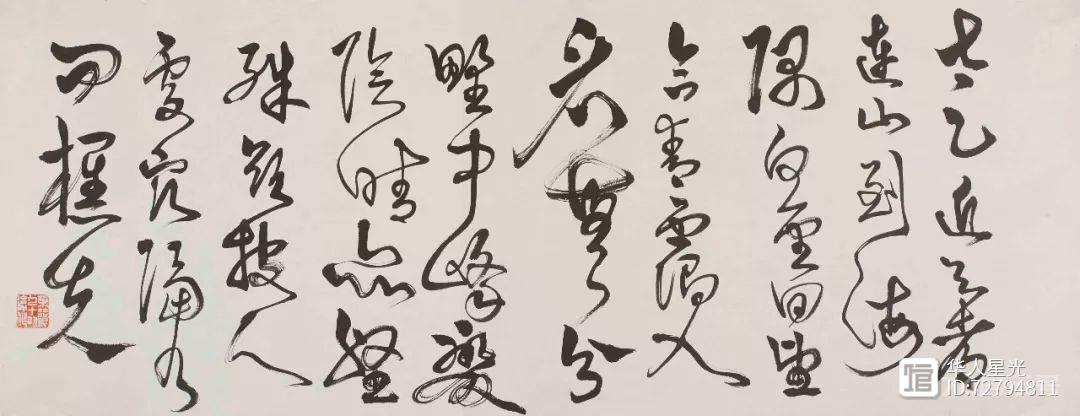 太乙近天都
連山到海
隅白雲回望
合青靄入
看無分
野中峰變
陰晴眾壑
殊欲投人
處宿隔水
問樵夫
华人星光
ID:72794811